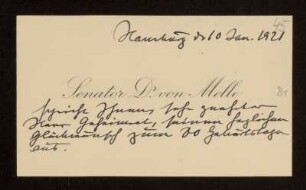 Hamburg d 10 Jan. 1921
Senator Dr. von Melle
spricht Ihnen, sehr geehrter
Herr Geheimrat, seinen herzlichen
Glückwunsch zum 80 Geburtstage
aus.